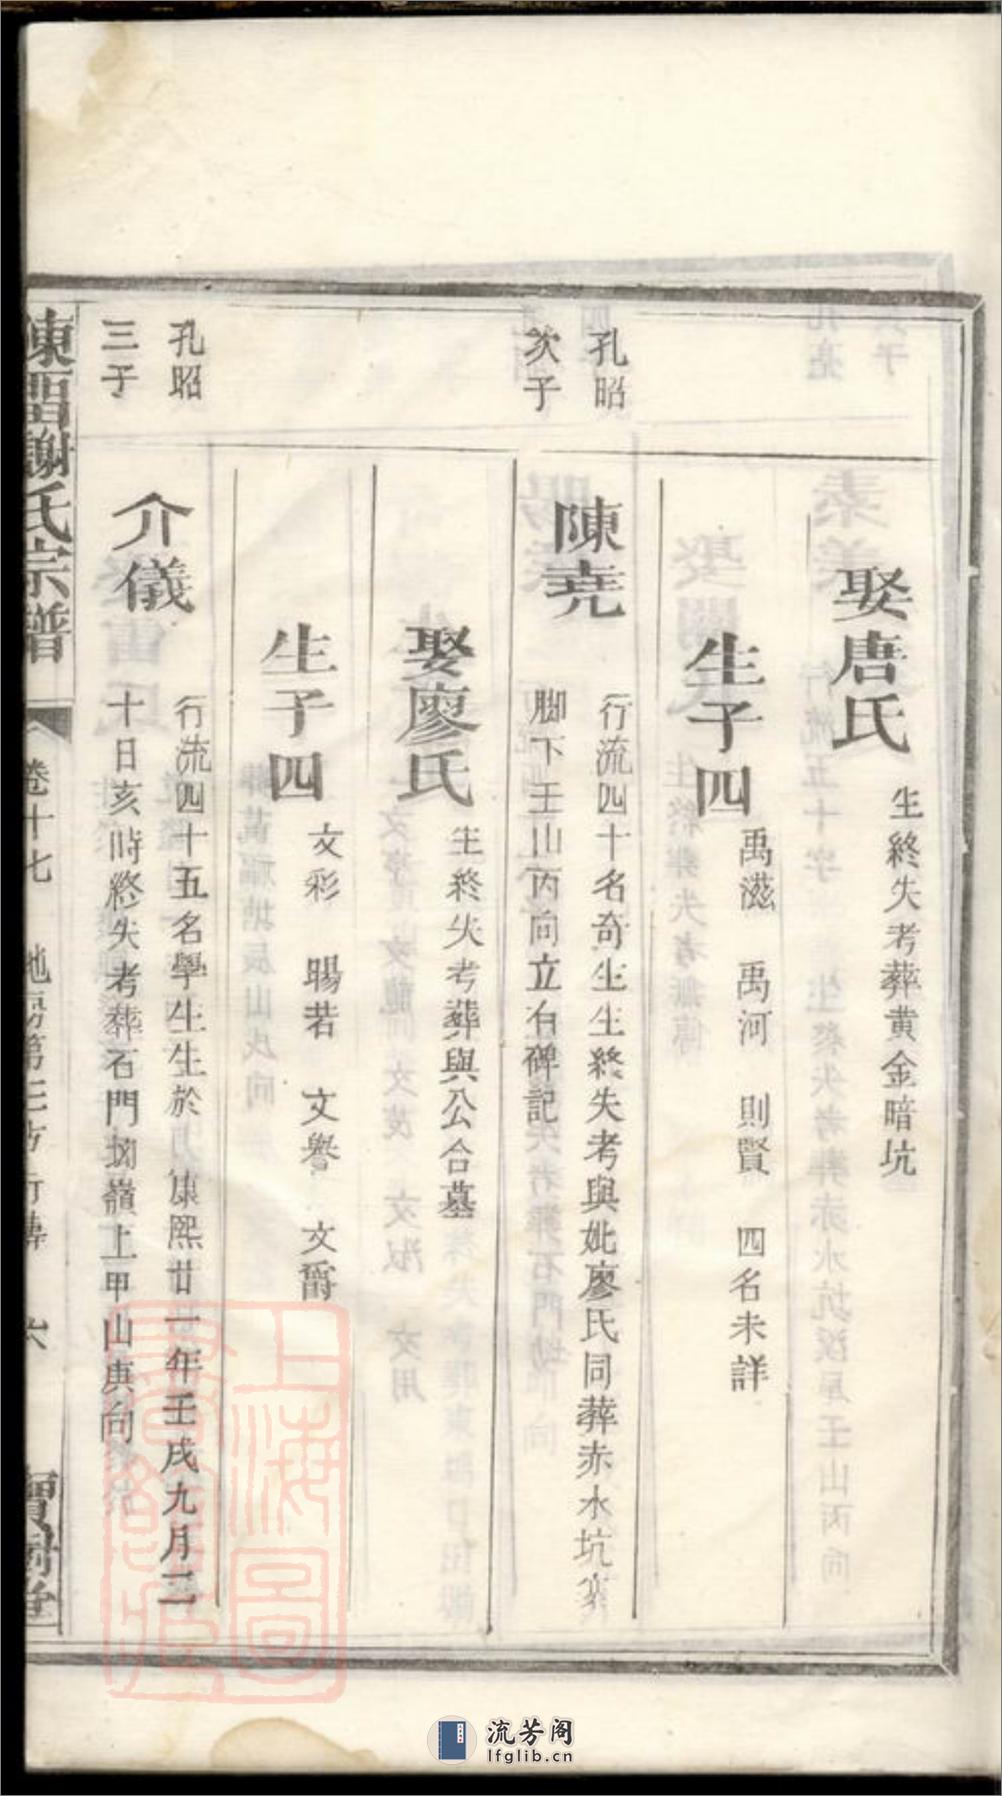 娶唐氏
生終失考葬黄金暗坑
生子四
禹滋 禹河 則賢 四名未詳
孔昭
次子
陳堯
行流四十名奇生生終失考與妣廖氏同葬赤水坑寨
脚下壬山丙向立石碑記
娶廖氏
生終失考葬與公合墓
生子四
文彩 賜若 文譽 文爵
孔昭
三子
介儀
行流四十五名學生生於康熙廿一年壬戌九月二
十日亥時終失考葬石門坳嶺上甲山庚向
陳畱謝氏宗譜 卷十七 地房第三 行傳 六 寶樹堂
上海圖書館藏
流芳阁
lfglib.cn